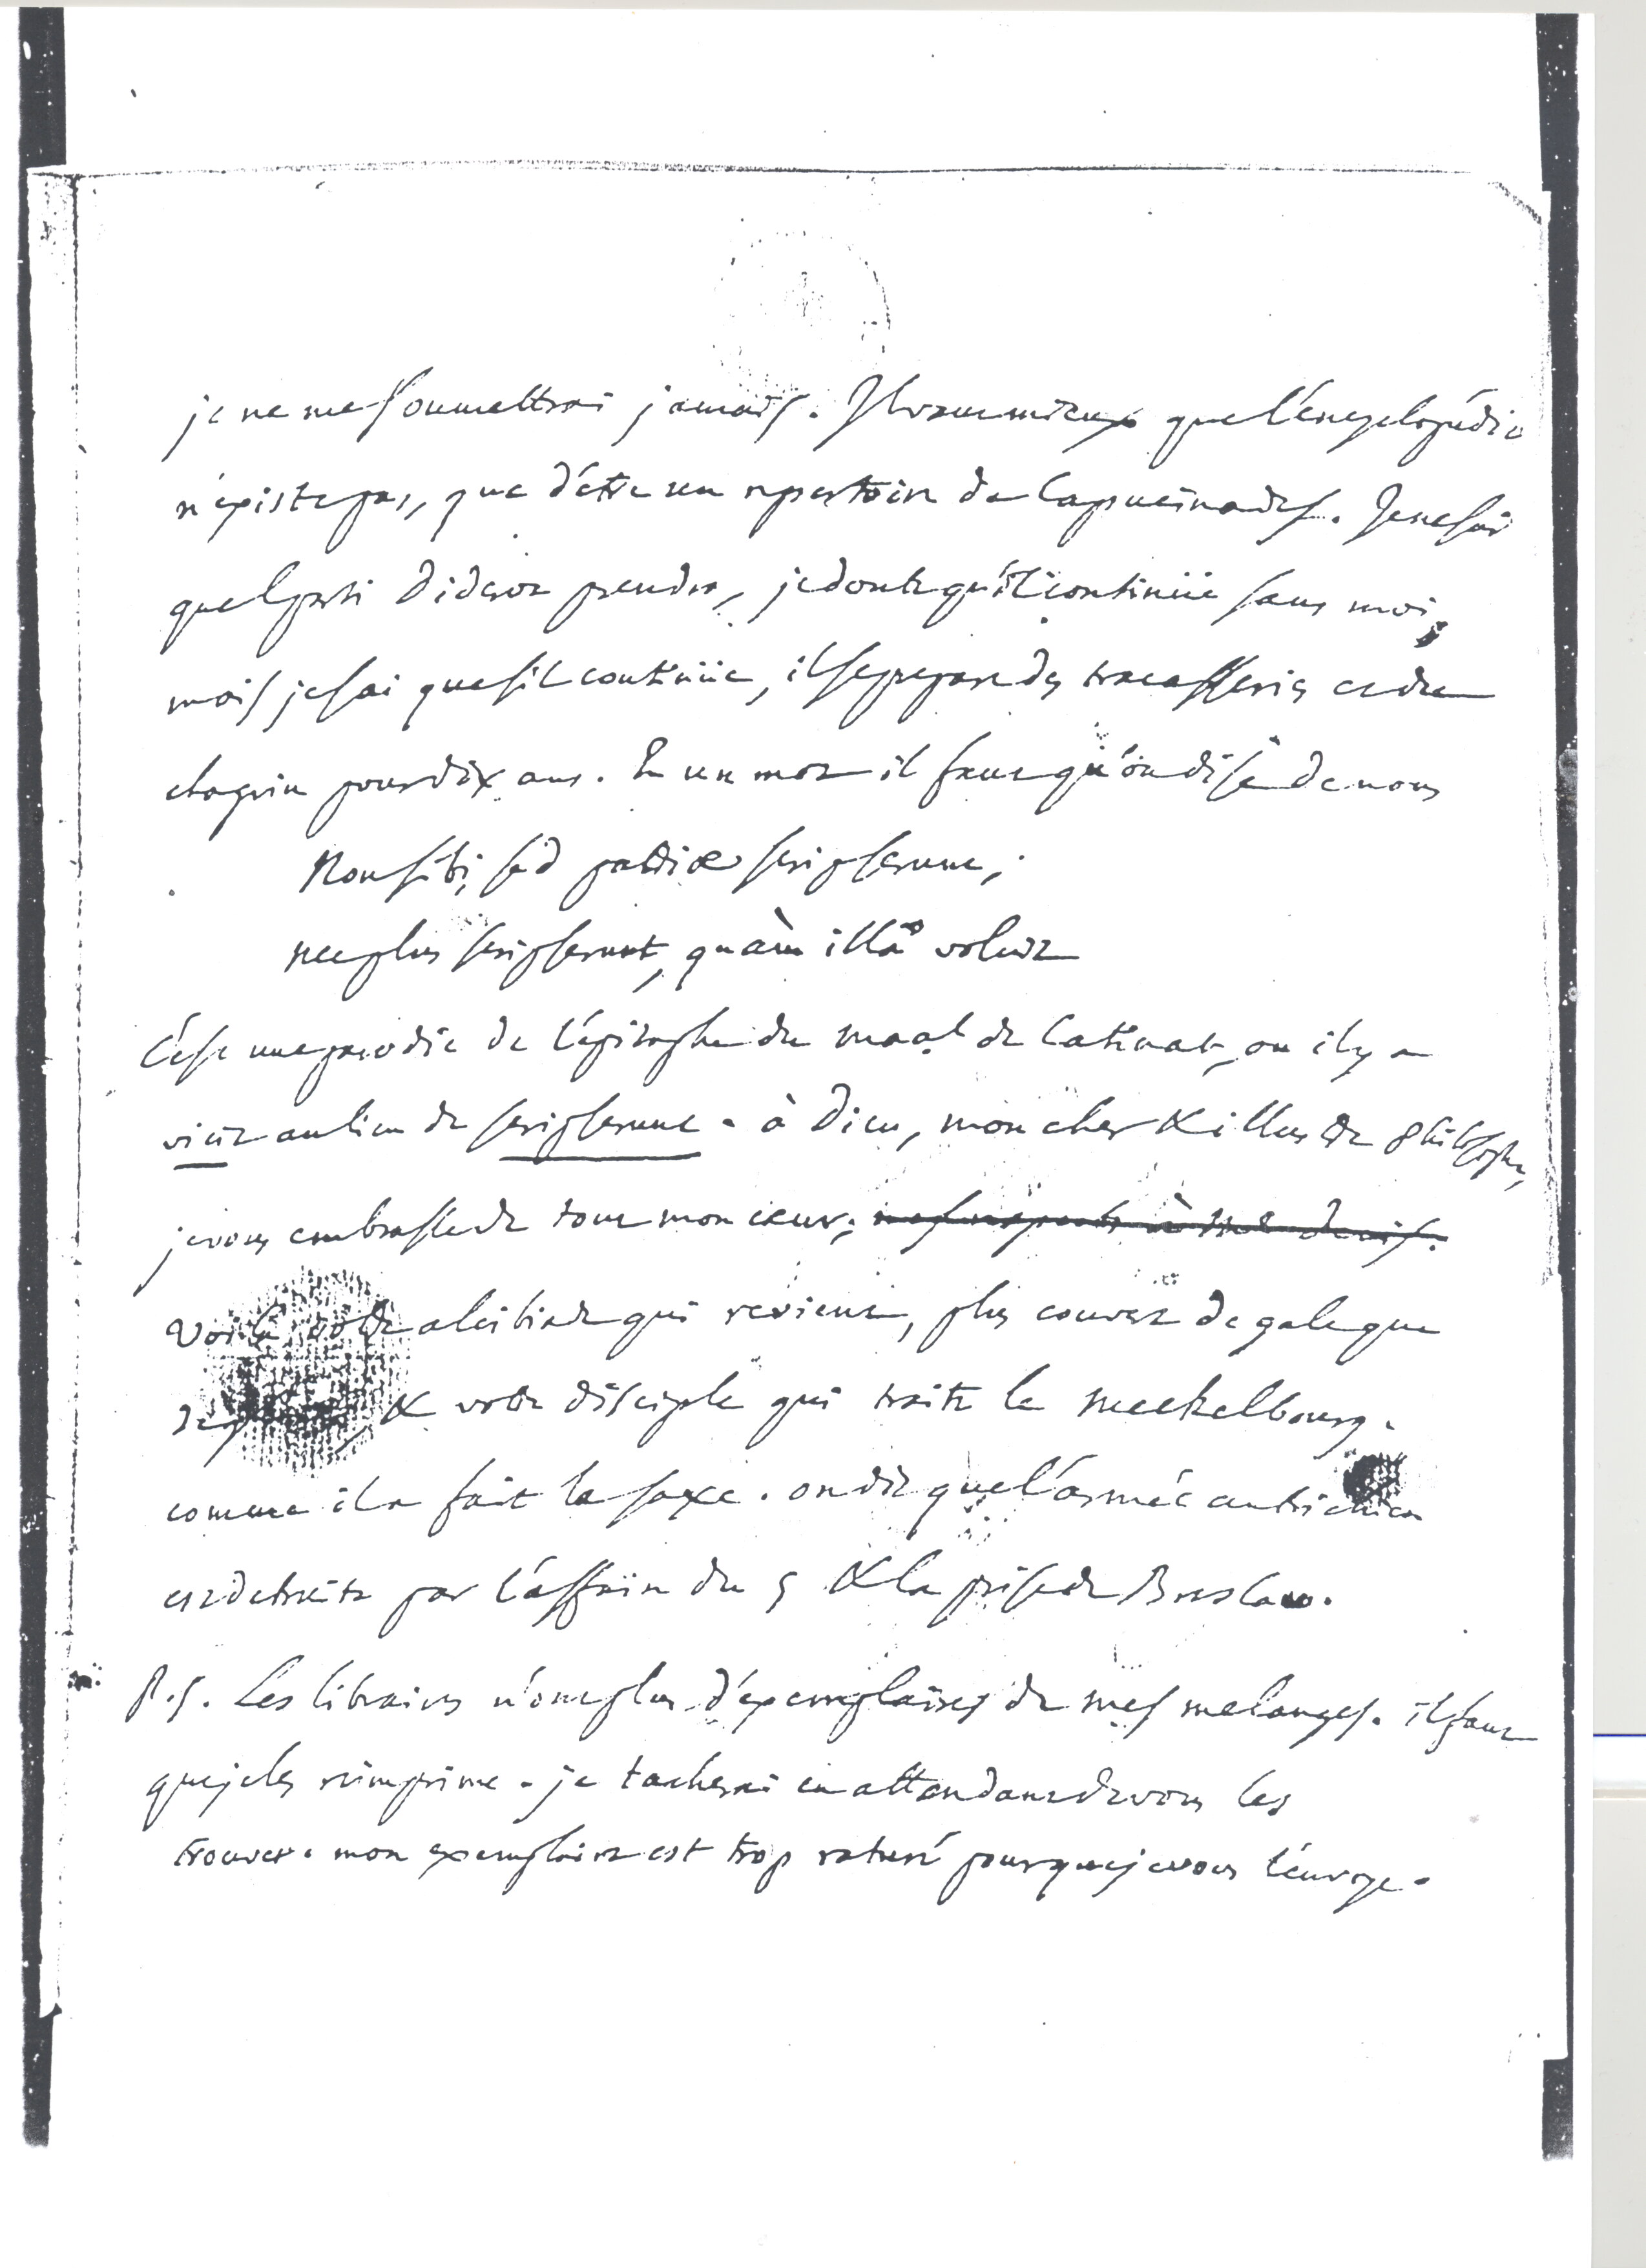 je ne me soumettrai jamais. Il vaut mieux que l'encyclopédie
n'existe pas, que d'être un repertoire de capucinades. Je ne sai
quel parti Diderot prendra, je doute qu'il continüe sans moi,
mais je sai que s'il continüe, il se prepare des tracasseries et du
chagrin pour dix ans. En un mot il faut qu'on dise de nous
Non sibi, sed patriæ scripserunt;
nec plus scripserunt, quàm illa voluit
C'est une parodie de l'épitaphe du maal de Catinat, ou il y a
vicit au lieu de scripserunt. à Dieu, mon cher & illustre philosophe,
je vous embrasse de tout mon cœur; mes respects à Made denis.
Voila votre alcibiade qui revient, plus couvert de gale que
de & votre disciple qui traite le meckelbourg.
comme il a fait la saxe. on dit que l'armée autrichienne
est detruite par l'affaire du 5 & la prise de Breslaw.
P.S. Les libraires n'ont plus d'exemplaires de mes melanges. il faut
que je les reimprime. je tacherai en attendant de vous les
trouver. mon exemplaire est trop raturé pour que je vous l'envoye.